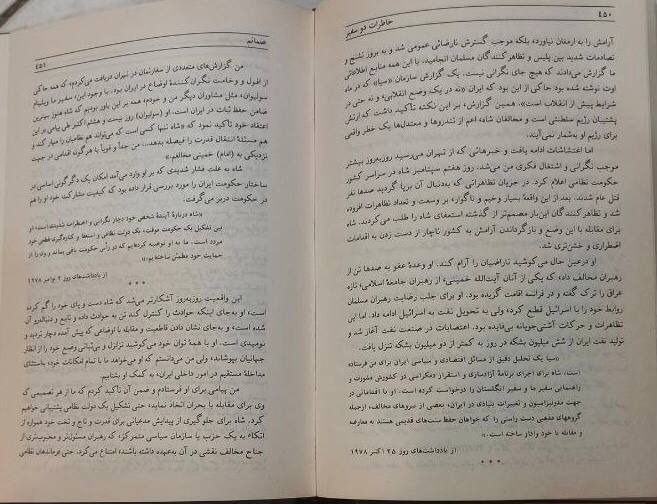 ۴۵۰
خاطرات دو سفیر
آرامش را به ارمغان نیاورد، بلکه موجب گسترش نارضائی عمومی شد و به بروز تشنج و
تصادمات شدید بین پلیس و تظاهرکنندگان مسلمان انجامید. با این همه منابع اطلاعاتی
ما گزارش می‌دادند که هیچ جای نگرانی نیست. یک گزارش سازمان «سیا» که در ماه
اوت نوشته شده بود حاکی از این بود که ایران «نه در یک وضع انقلابی، و نه حتی در
شرایط پیش از انقلاب است». همین گزارش، بر این نکته تأکید داشت که ارتش
پشتیبان رژیم سلطنتی است و مخالفان شاه، اعم از تندروها و معتدل‌ها یک خطر واقعی
برای رژیم او به‌شمار نمی‌آیند.
اما اغتشاشات ادامه یافت و خبرهائی که از تهران می‌رسید روزبه‌روز بیشتر
موجب نگرانی و اشتغال فکری من می‌شد. روز هفتم سپتامبر شاه در سراسر کشور
حکومت نظامی اعلام کرد. در جریان تظاهراتی که به‌دنبال آن برپا گردید صدها نفر
قتل عام شدند. بعد از این واقعهٔ بسیار وخیم و ناگوار، بر وسعت و تعداد تظاهرات افزوده
شد و تظاهرکنندگان این‌بار مصمم‌تر از گذشته استعفای شاه را طلب می‌کردند. شاه
برای مقابله با این وضع و بازگرداندن آرامش به کشور ناچار از دست زدن به اقدامات
اضطراری و خشن‌تری شد.
او درعین حال می‌کوشید ناراضیان را آرام کند. او وعدهٔ عفو به صدها تن از
رهبران مخالف داد، که یکی از آنان آیت‌الله خمینی، از رهبران جامعهٔ اسلامی، تازه
عراق را ترک گفته و در فرانسه اقامت گزیده بود. او برای جلب رضایت رهبران مسلمان
روابط خود را با اسرائیل قطع کرد، ولی به تحویل نفت به اسرائیل ادامه داد. اما این
تظاهرات و حرکات آشتی‌جویانه بی‌فایده بود. اعتصابات در صنعت نفت آغاز شد و
تولید نفت ایران از شش میلیون بشکه در روز به کمتر از دو میلیون بشکه تنزل یافت.
«سیا یک تحلیل دقیق از مسائل اقتصادی و سیاسی ایران برای من فرستاده
است. شاه برای اجرای برنامهٔ آزادسازی و استقرار دمکراسی در کشورش مشورت و
راهنمایی سفیر ما و سفیر انگلستان را درخواست کرده است. او با اقداماتی در
جهت مدرنیزاسیون و تغییرات بنیادی در ایران، بعضی از نیروهای مخالف، ازجمله
گروههای مذهبی دست راستی را که خواهان حفظ سنت‌های قدیمی هستند به معارضه
و مقابله با خود وادار ساخته است.»
از یادداشت‌های روز ۲۵ اکتبر ۱۹۷۸
***
ضمائم
۴۵۱
من گزارش‌های متعددی از سفارتمان در تهران دریافت می‌کردم، که همه حاکی
از افول و وخامت نگران‌کنندهٔ اوضاع در ایران بود. با وجود این، سفیر ما ویلیام
سولیوان، مثل مشاوران دیگر من و خودم، همه بر این باور بودیم که شاه هنوز بهترین
ضامن حفظ ثبات در ایران است. او (سولیوان) روز بیست و هشتم اکتبر طی پیامی بر این
اعتقاد خود تأکید نمود که «شاه تنها کسی است که می‌تواند هم نظامیان را مهار کند و
هم مسئلهٔ انتقال قدرت را فیصله بدهد... من جداً و قویاً با هرگونه اقدامی در جهت
نزدیکی به (امام) خمینی مخالفم.»
شاه به علت فشار شدیدی که بر او وارد می‌آمد امکان یک دگرگونی اساسی در
ساختار حکومت ایران را مورد بررسی قرار داده بود که کیفیت مشارکت خود او را هم
در حکومت دربر می‌گرفت.
«شاه دربارهٔ آیندهٔ شخص خود دچار نگرانی و اضطراب شدیدی است؛ او
بین تشکیل یک حکومت موقت، یک دولت نظامی و استعفا و کناره‌گیری قطعی خود
مردد است. ما به او توصیه کرده‌ایم که در رأس حکومت باقی بماند و وی را از
حمایت خود مطمئن ساخته‌ایم.»
از یادداشت‌های روز ۲ نوامبر ۱۹۷۸
***
این واقعیت روزبه‌روز آشکارتر می‌شد که شاه دست و پای خود را گم کرده
است، او به‌جای اینکه حوادث را کنترل کند تن به حوادث داده و تابع و دنباله‌رو آن
شده است، و به‌جای نشان دادن قاطعیت و مقابله با اوضاعی که پیش آمده دچار تردید و
نومیدی است. او با همهٔ توان خود می‌کوشید تزلزل و بی‌ثباتی وضع خود را از انظار
جهانیان بپوشاند، ولی من می‌دانستم که او می‌خواهد ما با تمام امکانات خود، باستثنای
مداخلهٔ مستقیم در امور داخلی ایران، به کمک او بشتابیم.
من پیامی برای او فرستادم و ضمن آن تأکید کردم که ما از هر تصمیمی که
وی برای مقابله با بحران اتخاذ نماید، حتی تشکیل یک دولت نظامی پشتیبانی خواهیم
کرد. شاه برای جلوگیری از پیدایش مدعیانی برای قدرت و تاج و تخت خود همواره از
اتکاء به یک حزب یا سازمان سیاسی متمرکز، که رهبران مسئول‌تر و محبوب‌تری از
جناح مخالف نقشی در آن به‌عهده داشته باشند، امتناع می‌کرد. حتی فرماندهان نظامی